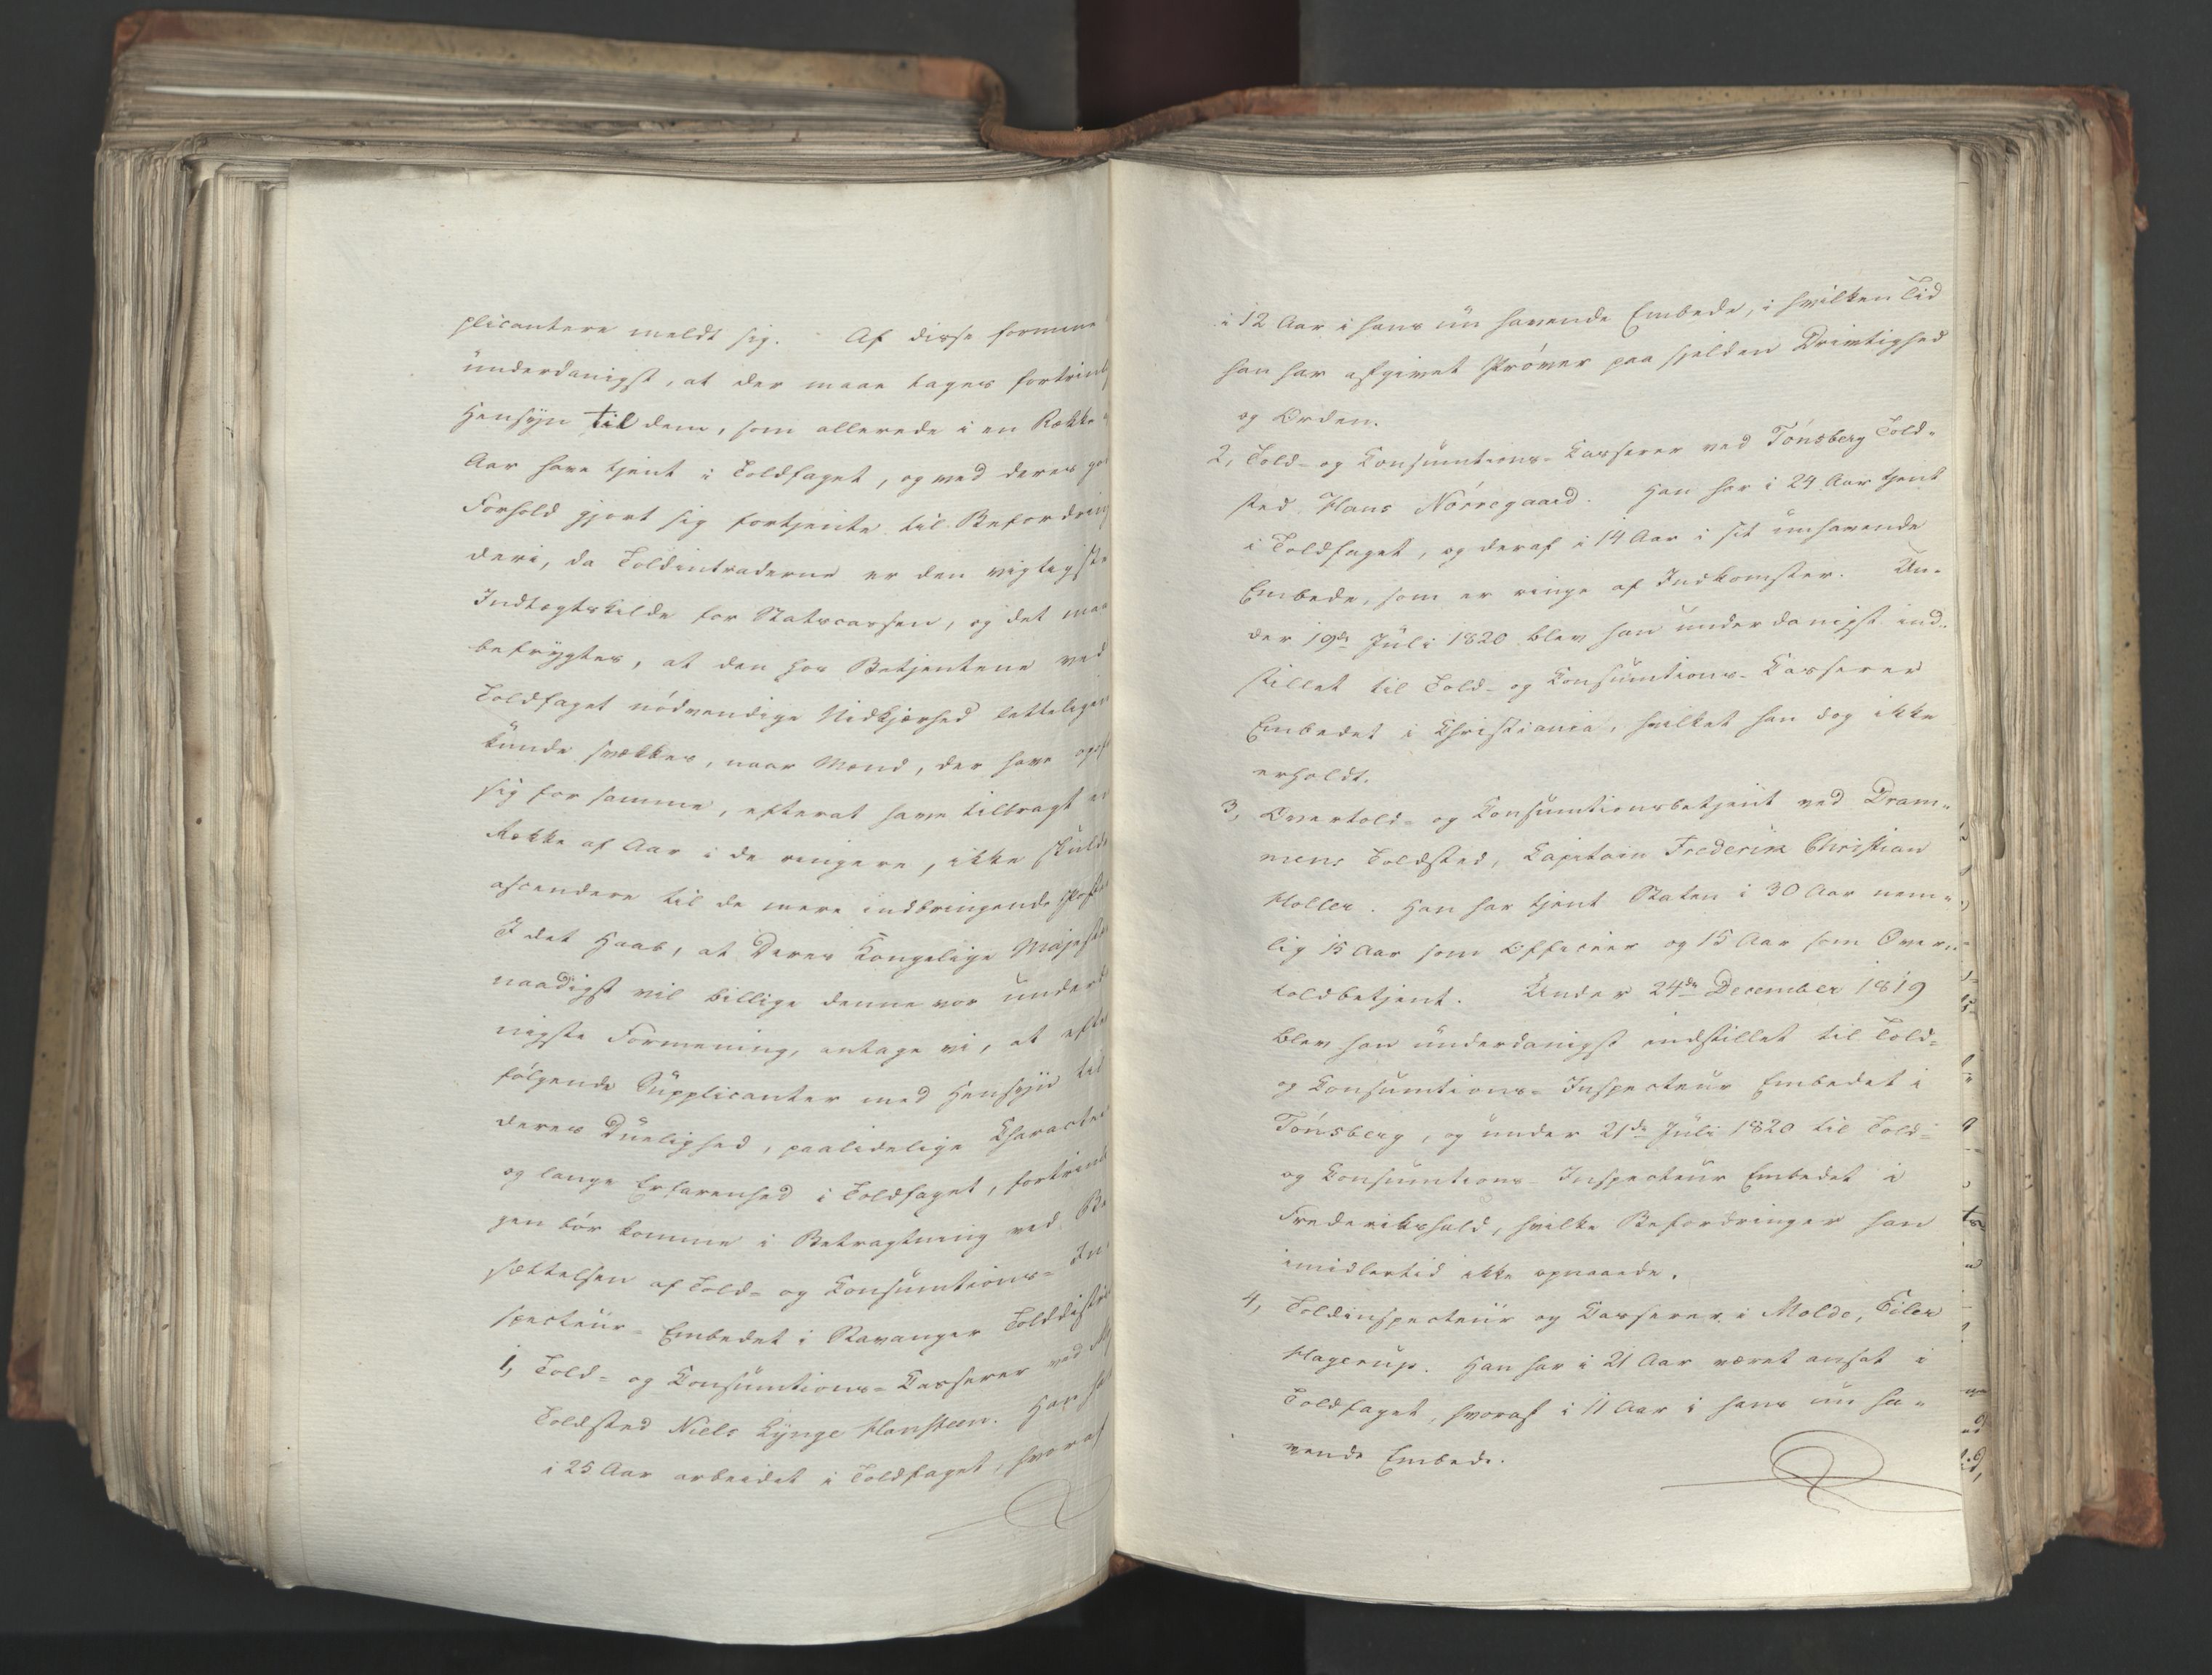 plicantere meldt sig. Af disse formene
underdanigst, at der maae tages fortrinlig
Hensyn til dem, som allerede i en Række
Aar have tjent i Toldfaget, og ved deres
Forhold gjort sig fortjente til Befordring
deri, da Toldintraderne er den vigtigste
Indtægtskilde for Statscassen, og det maa
befrygtes, at den hos Betjentene ved
Toldfaget nödvendige Nidkjærhed letteligen
kunde svækkes, naar Mænd, der have
sig for samme, efterat have tilbragt en
Række af Aar i de ringere, ikke skulde
ascendere til de mere indbringende Poster
I det Haab, at Deres Kongelige Majestæt
naadigst vil billige denne vor underda
nigste Formening, antage vi, at efter
fölgende Supplicanter med Hensyn til
deres Duelighed, paalidelige Character
og lange Erfarenhed i Toldfaget, fortrinli
gen bör komme i Betragtning ved Be
sættelsen af Told- og Consumtions- In
specteur- Embedet i Stavanger Tolddistrict
1, Told- og Consumtions- Casserer ved
Toldsted Niels Lynge Hansteen. Han har
i 25 Aar arbeidet i Toldfaget, hvoraf
i 12 Aar i hans nu havende Embede, i hvilken Tid
han har afgivet Pröver paa sjelden Drivtighed
og Orden.
2, Told- og Consumtions- Casserer ved Tönsberg Told-
sted, Hans Nörregaard. Han har i 24 Aar tjent
i Toldfaget, og deraf i 14 Aar i sit iinhavende
Embede, som er ringe af Indkomster. Un-
der 19de Juli 1820 blev han underdanigst ind-
stillet til Told- og Consumtions- Casserer
Embedet i Christiania, hvilket han dog ikke
erholdt.
3, Overtold- og Consumtionsbetjent ved Dram-
mens Toldsted, Capitain Frederik Christian
Holler. Han har tjent Staten i 30 Aar nem-
lig 15 Aar som Officier og 15 Aar som Over-
toldbetjent. Under 24de December 1819
blev han underdanigst indstillet til Told-
og Consumtions- Inspecteur Embedet i
Tönsberg, og under 21de Juli 1820 til Told-
og Consumtions- Inspecteur Embedet i
Frederikshald, hvilke Befordringer han
imidlertid ikke opnaaede.
4, Toldinspecteur og Casserer i Molde, Eiler
Hagerup. Han har i 21 Aar været ansat i
Toldfaget, hvoraf i 11 Aar i hans nu ha-
vende Embede.